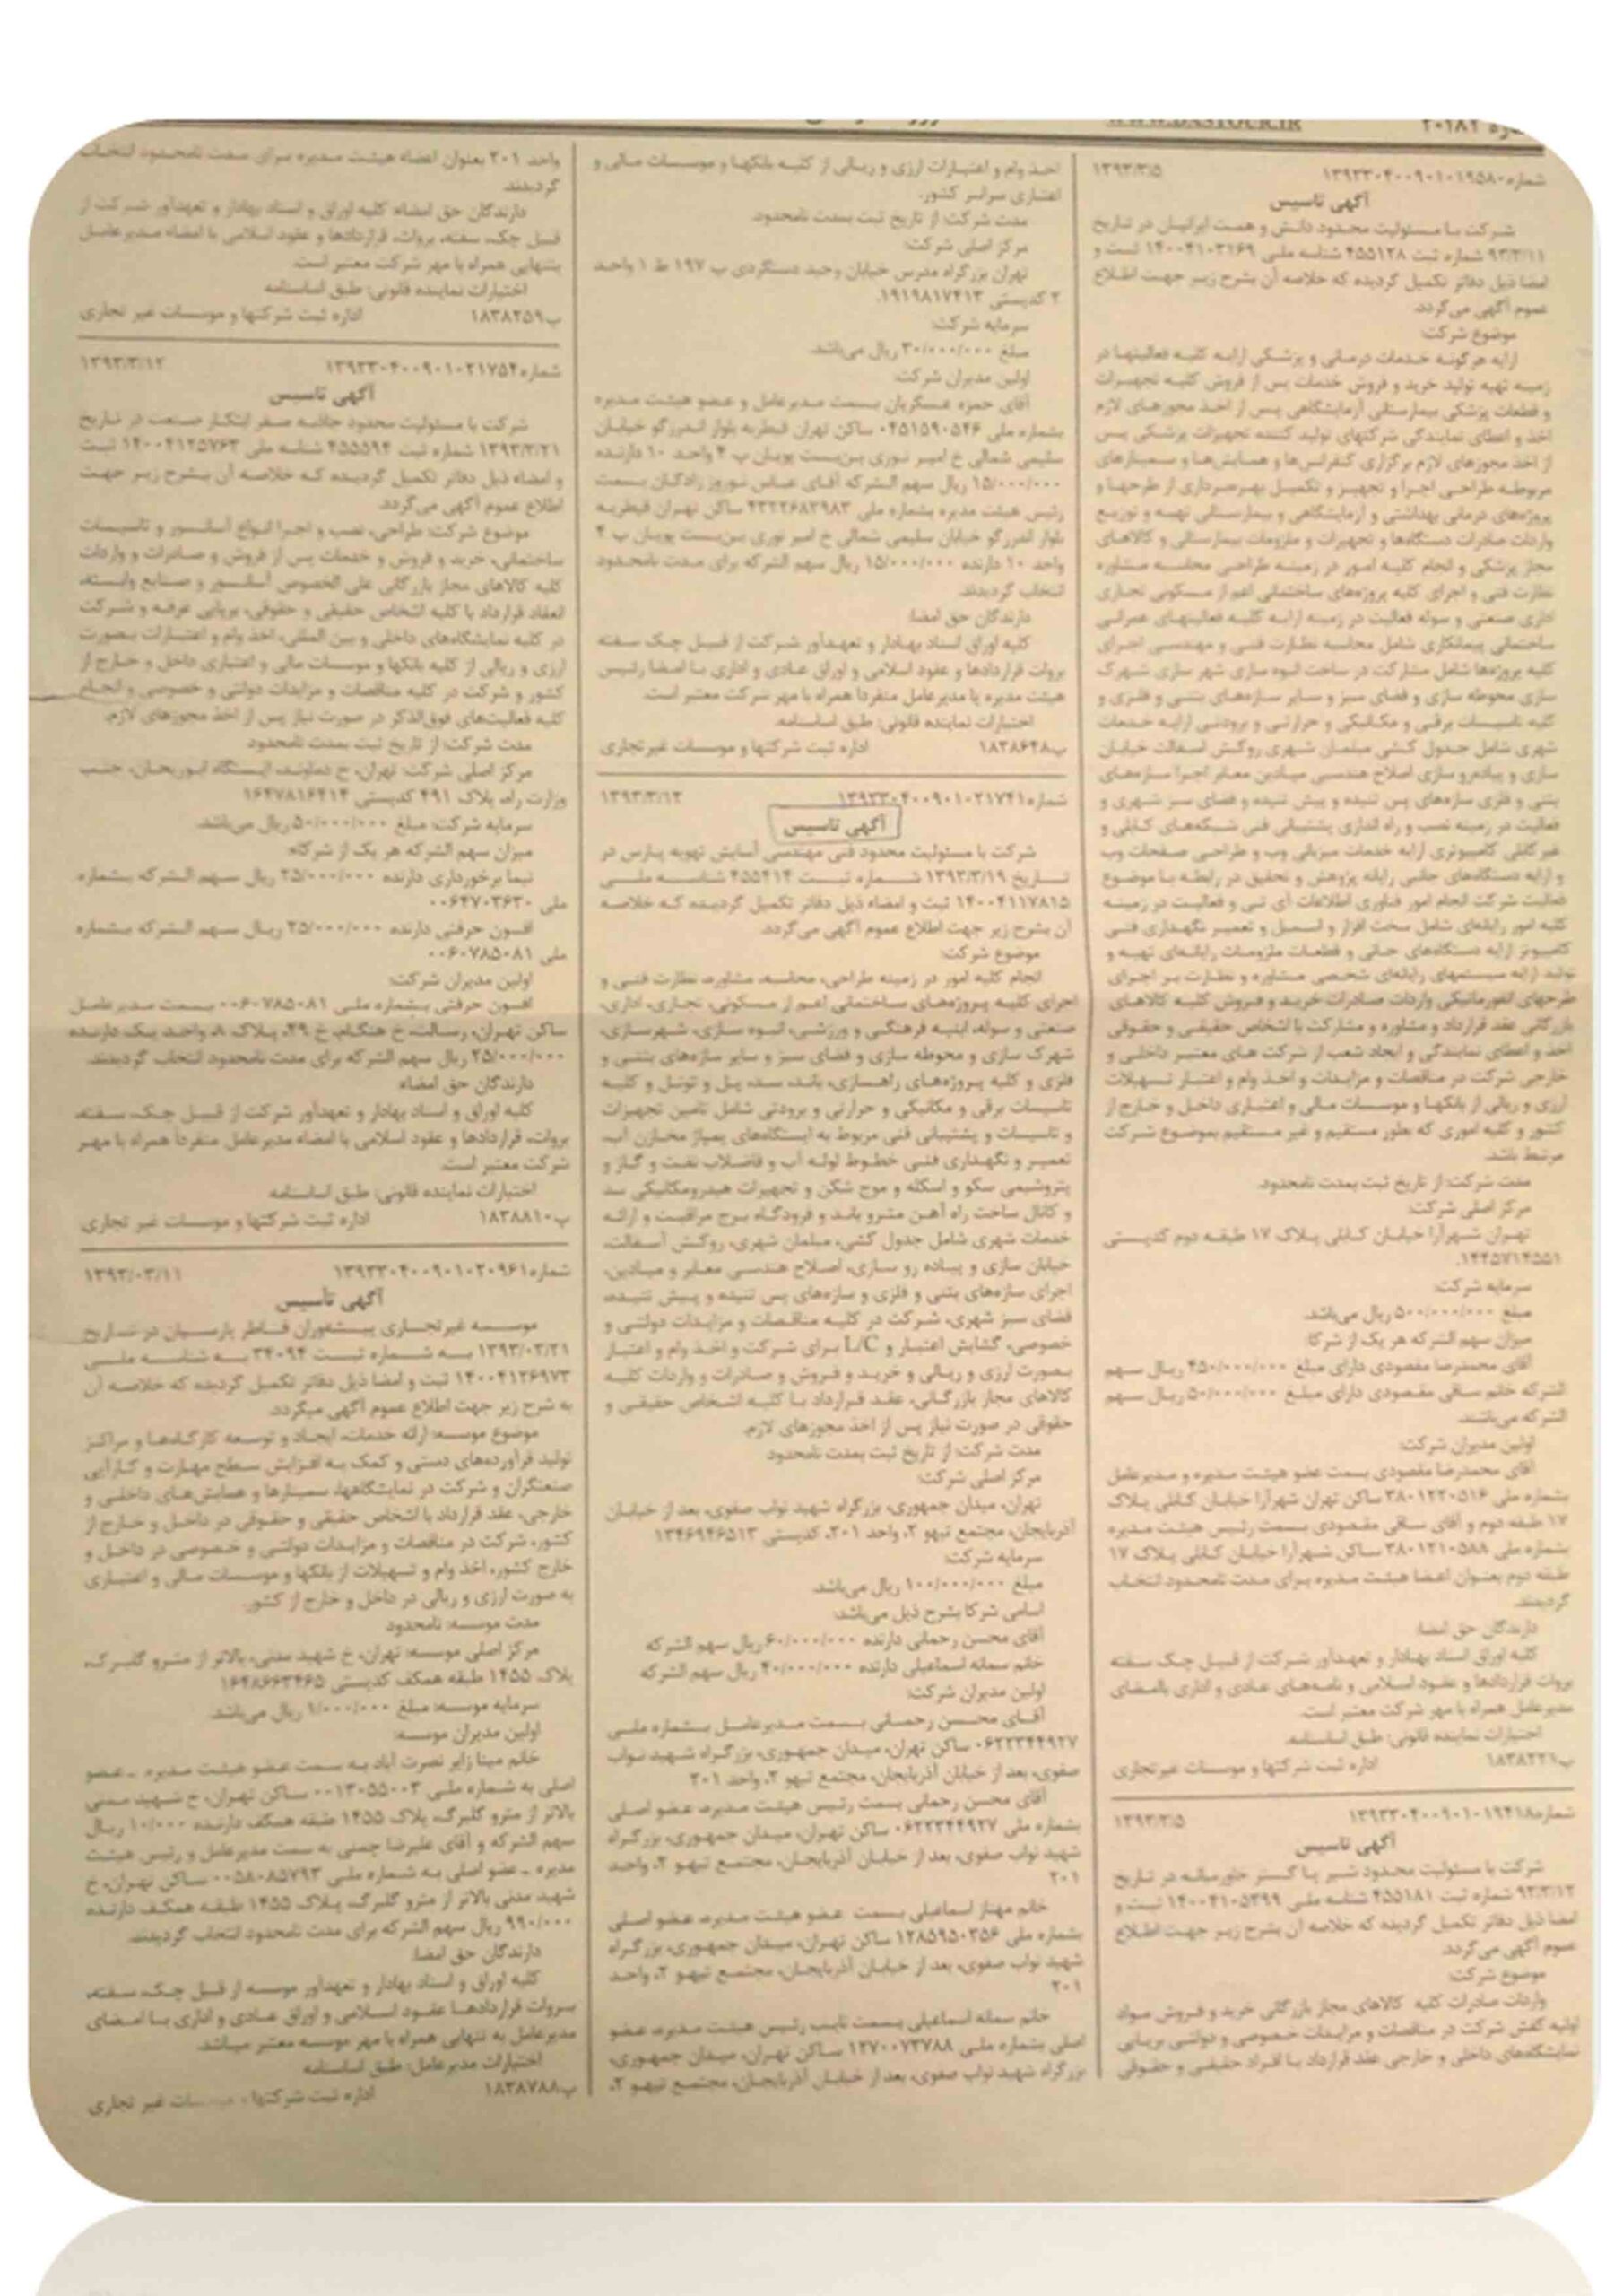 شماره ۲۰۱۸۲
WWW.DASTOUR.IR
شماره۱۳۹۳۳۰۴۰۰۹۰۱۰۱۹۵۸۰ ۱۳۹۳/۳/۵
آگهی تاسیس
شرکت با مسئولیت محدود دانش و همت ایرانیان در تاریخ
۹۳/۳/۱۱ شماره ثبت ۴۵۵۱۲۸ شناسه ملی ۱۴۰۰۴۱۰۳۱۶۹ ثبت و
امضا ذیل دفاتر تکمیل گردیده که خلاصه آن بشرح زیر جهت اطلاع
عموم آگهی می‌گردد.
موضوع شرکت:
ارایه هرگونه خدمات درمانی و پزشکی ارایه کلیه فعالیتها در
زمینه تهیه تولید خرید و فروش خدمات پس از فروش کلیه تجهیزات
و قطعات پزشکی بیمارستانی آزمایشگاهی پس از اخذ مجوزهای لازم
اخذ و اعطای نمایندگی شرکتهای تولید کننده تجهیزات پزشکی پس
از اخذ مجوزهای لازم برگزاری کنفرانس‌ها و همایش‌ها و سمینارهای
مربوطه طراحی اجرا و تجهیز و تکمیل بهره‌برداری از طرحها و
پروژه‌های درمانی بهداشتی و آزمایشگاهی و بیمارستانی تهیه و توزیع
واردات صادرات دستگاه‌ها و تجهیزات و ملزومات بیمارستانی و کالاهای
مجاز پزشکی و انجام کلیه امور در زمینه طراحی محاسبه مشاوره
نظارت فنی و اجرای کلیه پروژه‌های ساختمانی اعم از مسکونی تجاری
اداری صنعتی و سوله فعالیت در زمینه ارایه کلیه فعالیتهای عمرانی
ساختمانی پیمانکاری شامل محاسبه نظارت فنی و مهندسی اجرای
کلیه پروژه‌ها شامل مشارکت در ساخت انبوه سازی شهر سازی شهرک
سازی محوطه سازی و فضای سبز و سایر سازه‌های بتنی و فلزی و
کلیه تاسیسات برقی و مکانیکی و حرارتی و برودتی ارایه خدمات
شهری شامل جدول کشی مبلمان شهری روکش آسفالت خیابان
سازی و پیاده‌رو سازی اصلاح هندسی میادین معابر اجرا سازه‌های
بتنی و فلزی سازه‌های پس تنیده و پیش تنیده و فضای سبز شهری و
فعالیت در زمینه نصب و راه اندازی پشتیبانی فنی شبکه‌های کابلی و
غیر کابلی کامپیوتری ارایه خدمات میزبانی وب و طراحی صفحات وب
و ارایه دستگاه‌های جانبی رایانه پژوهش و تحقیق در رابطه با موضوع
فعالیت شرکت انجام امور فناوری اطلاعات آی تی و فعالیت در زمینه
کلیه امور رایانه‌ای شامل سخت افزار و اسمبل و تعمیر نگهداری فنی
کامپیوتر ارایه دستگاه‌های جانبی و قطعات ملزومات رایانه‌ای تهیه و
تولید ارایه سیستمهای رایانه‌ای شخصی مشاوره و نظارت بر اجرای
طرحهای انفورماتیکی واردات صادرات خرید و فروش کلیه کالاهای
بازرگانی عقد قرارداد و مشاوره و مشارکت با اشخاص حقیقی و حقوقی
اخذ و اعطای نمایندگی و ایجاد شعب از شرکت های معتبر داخلی و
خارجی شرکت در مناقصات و مزایدات و اخذ وام و اعتبار تسهیلات
ارزی و ریالی از بانکها و موسسات مالی و اعتباری داخل و خارج از
کشور و کلیه اموری که بطور مستقیم و غیر مستقیم بموضوع شرکت
مرتبط باشد.
مدت شرکت: از تاریخ ثبت بمدت نامحدود.
مرکز اصلی شرکت:
تهران شهرآرا خیابان کابلی پلاک ۱۷ طبقه دوم کدپستی
۱۴۴۵۷۱۴۵۵۱.
سرمایه شرکت:
مبلغ ۵۰۰/۰۰۰/۰۰۰ ریال می‌باشد.
میزان سهم الشرکه هر یک از شرکا
آقای محمدرضا مقصودی دارای مبلغ ۴۵۰/۰۰۰/۰۰۰ ریال سهم
الشرکه خانم ساقی مقصودی دارای مبلغ ۵۰/۰۰۰/۰۰۰ ریال سهم
الشرکه می‌باشند.
اولین مدیران شرکت:
آقای محمدرضا مقصودی بسمت عضو هیئت مدیره و مدیرعامل
بشماره ملی ۳۸۰۱۲۳۰۵۱۶ ساکن تهران شهرآرا خیابان کابلی پلاک
۱۷ طبقه دوم و آقای ساقی مقصودی بسمت رئیس هیئت مدیره
بشماره ملی ۳۸۰۱۲۱۰۵۸۸ ساکن شهرآرا خیابان کابلی پلاک ۱۷
طبقه دوم بعنوان اعضا هیئت مدیره برای مدت نامحدود انتخاب
گردیدند.
دارندگان حق امضا:
کلیه اوراق اسناد بهادار و تعهدآور شرکت از قبیل چک سفته
بروات قراردادها و عقود اسلامی و نامه‌های عادی و اداری باامضای
مدیرعامل همراه با مهر شرکت معتبر است.
اختیارات نماینده قانونی: طبق اساسنامه.
پ۱۸۳۸۲۲۱ اداره ثبت شرکتها و موسسات غیرتجاری
شماره۱۳۹۳۳۰۴۰۰۹۰۱۰۱۹۴۱۸ ۱۳۹۳/۳/۵
آگهی تاسیس
شرکت با مسئولیت محدود شیر پا گستر خاورمیانه در تاریخ
۹۳/۳/۱۲ شماره ثبت ۴۵۵۱۸۱ شناسه ملی ۱۴۰۰۴۱۰۵۳۹۹ ثبت و
امضا ذیل دفاتر تکمیل گردیده که خلاصه آن بشرح زیر جهت اطلاع
عموم آگهی می‌گردد.
موضوع شرکت:
واردات صادرات کلیه کالاهای مجاز بازرگانی خرید و فروش مواد
اولیه کفش شرکت در مناقصات و مزایدات خصوصی و دولتی برپایی
نمایشگاه‌های داخلی و خارجی عقد قرارداد با افراد حقیقی و حقوقی
اخذ وام و اعتبارات ارزی و ریالی از کلیه بانکها و موسسات مالی و
اعتباری سراسر کشور.
مدت شرکت: از تاریخ ثبت بمدت نامحدود.
مرکز اصلی شرکت:
تهران بزرگراه مدرس خیابان وحید دستگردی پ ۱۹۷ ط ۱ واحد
۲ کدپستی ۱۹۱۹۸۱۷۴۱۳.
سرمایه شرکت:
مبلغ ۳۰/۰۰۰/۰۰۰ ریال می‌باشد.
اولین مدیران شرکت:
آقای حمزه عسکریان بسمت مدیرعامل و عضو هیئت مدیره
بشماره ملی ۰۴۵۱۵۹۰۵۴۶ ساکن تهران قیطریه بلوار اندرزگو خیابان
سلیمی شمالی خ امیر نوری بن‌بست پویان پ ۴ واحد ۱۰ دارنده
۱۵/۰۰۰/۰۰۰ ریال سهم الشرکه آقای عباس نوروز زادگان بسمت
رئیس هیئت مدیره بشماره ملی ۴۳۲۲۶۸۳۹۸۳ ساکن تهران قیطریه
بلوار اندرزگو خیابان سلیمی شمالی خ امیر نوری بن‌بست پویان پ ۴
واحد ۱۰ دارنده ۱۵/۰۰۰/۰۰۰ ریال سهم الشرکه برای مدت نامحدود
انتخاب گردیدند.
دارندگان حق امضا:
کلیه اوراق اسناد بهادار و تعهدآور شرکت از قبیل چک سفته
بروات قراردادها و عقود اسلامی و اوراق عادی و اداری با امضا رئیس
هیئت مدیره یا مدیرعامل منفردا همراه با مهر شرکت معتبر است.
اختیارات نماینده قانونی: طبق اساسنامه.
پ۱۸۳۸۶۴۸ اداره ثبت شرکتها و موسسات غیرتجاری
شماره۱۳۹۳۳۰۴۰۰۹۰۱۰۲۱۷۴۱ ۱۳۹۳/۳/۱۲
آگهی تاسیس
شرکت با مسئولیت محدود فنی مهندسی آسایش تهویه پارس در
تاریخ ۱۳۹۳/۳/۱۹ شماره ثبت ۴۵۵۴۱۴ شناسه ملی
۱۴۰۰۴۱۱۷۸۱۵ ثبت و امضاء ذیل دفاتر تکمیل گردیده که خلاصه
آن بشرح زیر جهت اطلاع عموم آگهی می‌گردد.
موضوع شرکت:
انجام کلیه امور در زمینه طراحی، محاسبه، مشاوره، نظارت فنی و
اجرای کلیه پروژه‌های ساختمانی اعم از مسکونی، تجاری، اداری،
صنعتی و سوله، ابنیه فرهنگی و ورزشی، انبوه سازی، شهرسازی،
شهرک سازی و محوطه سازی و فضای سبز و سایر سازه‌های بتنی و
فلزی و کلیه پروژه‌های راهسازی، باند، سد، پل و تونل و کلیه
تاسیسات برقی و مکانیکی و حرارتی و برودتی شامل تامین تجهیزات
و تاسیسات و پشتیبانی فنی مربوط به ایستگاه‌های پمپاژ مخازن آب،
تعمیر و نگهداری فنی خطوط لوله آب و فاضلاب نفت و گاز و
پتروشیمی سکو و اسکله و موج شکن و تجهیزات هیدرومکانیکی سد
و کانال ساخت راه آهن مترو باند و فرودگاه برج مراقبت و ارائه
خدمات شهری شامل جدول کشی، مبلمان شهری، روکش آسفالت،
خیابان سازی و پیاده رو سازی، اصلاح هندسی معابر و میادین،
اجرای سازه‌های بتنی و فلزی و سازه‌های پس تنیده و پیش تنیده،
فضای سبز شهری، شرکت در کلیه مناقصات و مزایدات دولتی و
خصوصی، گشایش اعتبار و L/C برای شرکت و اخذ وام و اعتبار
بصورت ارزی و ریالی و خرید و فروش و صادرات و واردات کلیه
کالاهای مجاز بازرگانی، عقد قرارداد با کلیه اشخاص حقیقی و
حقوقی در صورت نیاز پس از اخذ مجوزهای لازم.
مدت شرکت: از تاریخ ثبت بمدت نامحدود
مرکز اصلی شرکت:
تهران، میدان جمهوری، بزرگراه شهید نواب صفوی، بعد از خیابان
آذربایجان، مجتمع تیهو ۲، واحد ۲۰۱، کدپستی ۱۳۴۶۹۴۶۵۱۳
سرمایه شرکت:
مبلغ ۱۰۰/۰۰۰/۰۰۰ ریال می‌باشد.
اسامی شرکا بشرح ذیل می‌باشد:
آقای محسن رحمانی دارنده ۶۰/۰۰۰/۰۰۰ ریال سهم الشرکه
خانم سمانه اسماعیلی دارنده ۴۰/۰۰۰/۰۰۰ ریال سهم الشرکه
اولین مدیران شرکت:
آقای محسن رحمانی بسمت مدیرعامل بشماره ملی
۰۶۲۲۳۴۴۹۲۷ ساکن تهران، میدان جمهوری، بزرگراه شهید نواب
صفوی، بعد از خیابان آذربایجان، مجتمع تیهو ۲، واحد ۲۰۱
آقای محسن رحمانی بسمت رئیس هیئت مدیره، عضو اصلی
بشماره ملی ۰۶۲۲۳۴۴۹۲۷ ساکن تهران، میدان جمهوری، بزرگراه
شهید نواب صفوی، بعد از خیابان آذربایجان، مجتمع تیهو ۲، واحد
۲۰۱
خانم مهناز اسماعیلی بسمت عضو هیئت مدیره، عضو اصلی
بشماره ملی ۱۲۸۵۹۵۰۳۵۶ ساکن تهران، میدان جمهوری، بزرگراه
شهید نواب صفوی، بعد از خیابان آذربایجان، مجتمع تیهو ۲، واحد
۲۰۱
خانم سمانه اسماعیلی بسمت نایب رئیس هیئت مدیره، عضو
اصلی بشماره ملی ۱۲۷۰۰۷۳۷۸۸ ساکن تهران، میدان جمهوری،
بزرگراه شهید نواب صفوی، بعد از خیابان آذربایجان، مجتمع تیهو ۲،
واحد ۲۰۱ بعنوان اعضاء هیئت مدیره برای مدت نامحدود انتخاب
گردیدند.
دارندگان حق امضاء: کلیه اوراق و اسناد بهادار و تعهدآور شرکت از
قبیل چک، سفته، بروات، قراردادها و عقود اسلامی با امضاء مدیرعامل
بتنهایی همراه با مهر شرکت معتبر است.
اختیارات نماینده قانونی: طبق اساسنامه
پ۱۸۳۸۲۵۹ اداره ثبت شرکتها و موسسات غیر تجاری
شماره۱۳۹۳۳۰۴۰۰۹۰۱۰۲۱۷۵۲ ۱۳۹۳/۳/۱۲
آگهی تاسیس
شرکت با مسئولیت محدود جاذبه صفر ابتکار صنعت در تاریخ
۱۳۹۳/۳/۲۱ شماره ثبت ۴۵۵۵۹۴ شناسه ملی ۱۴۰۰۴۱۲۵۷۶۳ ثبت
و امضاء ذیل دفاتر تکمیل گردیده که خلاصه آن بشرح زیر جهت
اطلاع عموم آگهی می‌گردد.
موضوع شرکت: طراحی، نصب و اجرا انواع آسانسور و تاسیسات
ساختمانی، خرید و فروش و خدمات پس از فروش و صادرات و واردات
کلیه کالاهای مجاز بازرگانی علی الخصوص آسانسور و صنایع وابسته،
انعقاد قرارداد با کلیه اشخاص حقیقی و حقوقی، برپایی غرفه و شرکت
در کلیه نمایشگاه‌های داخلی و بین المللی، اخذ وام و اعتبارات بصورت
ارزی و ریالی از کلیه بانکها و موسسات مالی و اعتباری داخل و خارج از
کشور و شرکت در کلیه مناقصات و مزایدات دولتی و خصوصی و انجام
کلیه فعالیت‌های فوق‌الذکر در صورت نیاز پس از اخذ مجوزهای لازم.
مدت شرکت: از تاریخ ثبت بمدت نامحدود
مرکز اصلی شرکت: تهران، خ دماوند، ایستگاه ابوریحان، جنب
وزارت راه، پلاک ۴۹۱ کدپستی ۱۶۴۷۸۱۶۴۱۴
سرمایه شرکت: مبلغ ۵۰/۰۰۰/۰۰۰ ریال می‌باشد.
میزان سهم الشرکه هر یک از شرکاء:
نیما برخورداری دارنده ۲۵/۰۰۰/۰۰۰ ریال سهم الشرکه بشماره
ملی ۰۰۶۴۷۰۳۶۳۰
افسون حرفتی دارنده ۲۵/۰۰۰/۰۰۰ ریال سهم الشرکه بشماره
ملی ۰۰۶۰۷۸۵۰۸۱
اولین مدیران شرکت:
افسون حرفتی بشماره ملی ۰۰۶۰۷۸۵۰۸۱ بسمت مدیرعامل
ساکن تهران، رسالت، خ هنگام، خ ۳۹، پلاک ۸، واحد یک دارنده
۲۵/۰۰۰/۰۰۰ ریال سهم الشرکه برای مدت نامحدود انتخاب گردیدند.
دارندگان حق امضاء:
کلیه اوراق و اسناد بهادار و تعهدآور شرکت از قبیل چک، سفته،
بروات، قراردادها و عقود اسلامی با امضاء مدیرعامل منفردا همراه با مهر
شرکت معتبر است.
اختیارات نماینده قانونی: طبق اساسنامه
پ۱۸۳۸۸۱۰ اداره ثبت شرکتها و موسسات غیر تجاری
شماره۱۳۹۳۳۰۴۰۰۹۰۱۰۲۰۹۶۱ ۱۳۹۳/۰۳/۱۱
آگهی تأسیس
موسسه غیرتجاری پیشه‌وران فاطر پارسیان در تاریخ
۱۳۹۳/۰۳/۲۱ به شماره ثبت ۳۴۰۹۴ به شناسه ملی
۱۴۰۰۴۱۲۶۹۷۳ ثبت و امضا ذیل دفاتر تکمیل گردیده که خلاصه آن
به شرح زیر جهت اطلاع عموم آگهی میگردد.
موضوع موسسه: ارائه خدمات، ایجاد و توسعه کارگاه‌ها و مراکز
تولید فرآورده‌های دستی و کمک به افزایش سطح مهارت و کارآیی
صنعتگران و شرکت در نمایشگاهها، سمینارها و همایش‌های داخلی و
خارجی، عقد قرارداد با اشخاص حقیقی و حقوقی در داخل و خارج از
کشور، شرکت در مناقصات و مزایدات دولتی و خصوصی در داخل و
خارج کشور، اخذ وام و تسهیلات از بانکها و موسسات مالی و اعتباری
به صورت ارزی و ریالی در داخل و خارج از کشور.
مدت موسسه: نامحدود
مرکز اصلی موسسه: تهران، خ شهید مدنی، بالاتر از مترو گلبرگ،
پلاک ۱۴۵۵ طبقه همکف کدپستی ۱۶۴۸۶۶۳۴۶۵
سرمایه موسسه: مبلغ ۱/۰۰۰/۰۰۰ ریال می‌باشد.
اولین مدیران موسسه:
خانم مینا زایر نصرت آباد به سمت عضو هیئت مدیره ـ عضو
اصلی به شماره ملی ۰۰۱۳۰۵۵۰۰۳ ساکن تهران، خ شهید مدنی
بالاتر از مترو گلبرگ، پلاک ۱۴۵۵ طبقه همکف دارنده ۱۰/۰۰۰ ریال
سهم الشرکه و آقای علیرضا چمنی به سمت مدیرعامل و رئیس هیئت
مدیره ـ عضو اصلی به شماره ملی ۰۰۵۸۰۸۵۷۹۳ ساکن تهران، خ
شهید مدنی بالاتر از مترو گلبرگ، پلاک ۱۴۵۵ طبقه همکف دارنده
۹۹۰/۰۰۰ ریال سهم الشرکه برای مدت نامحدود انتخاب گردیدند.
دارندگان حق امضا:
کلیه اوراق و اسناد بهادار و تعهدآور موسسه از قبیل چک، سفته،
بروات قراردادها عقود اسلامی و اوراق عادی و اداری با امضای
مدیرعامل به تنهایی همراه با مهر موسسه معتبر میباشد.
اختیارات مدیرعامل: طبق اساسنامه
پ۱۸۳۸۷۸۸ اداره ثبت شرکتها و موسسات غیر تجاری